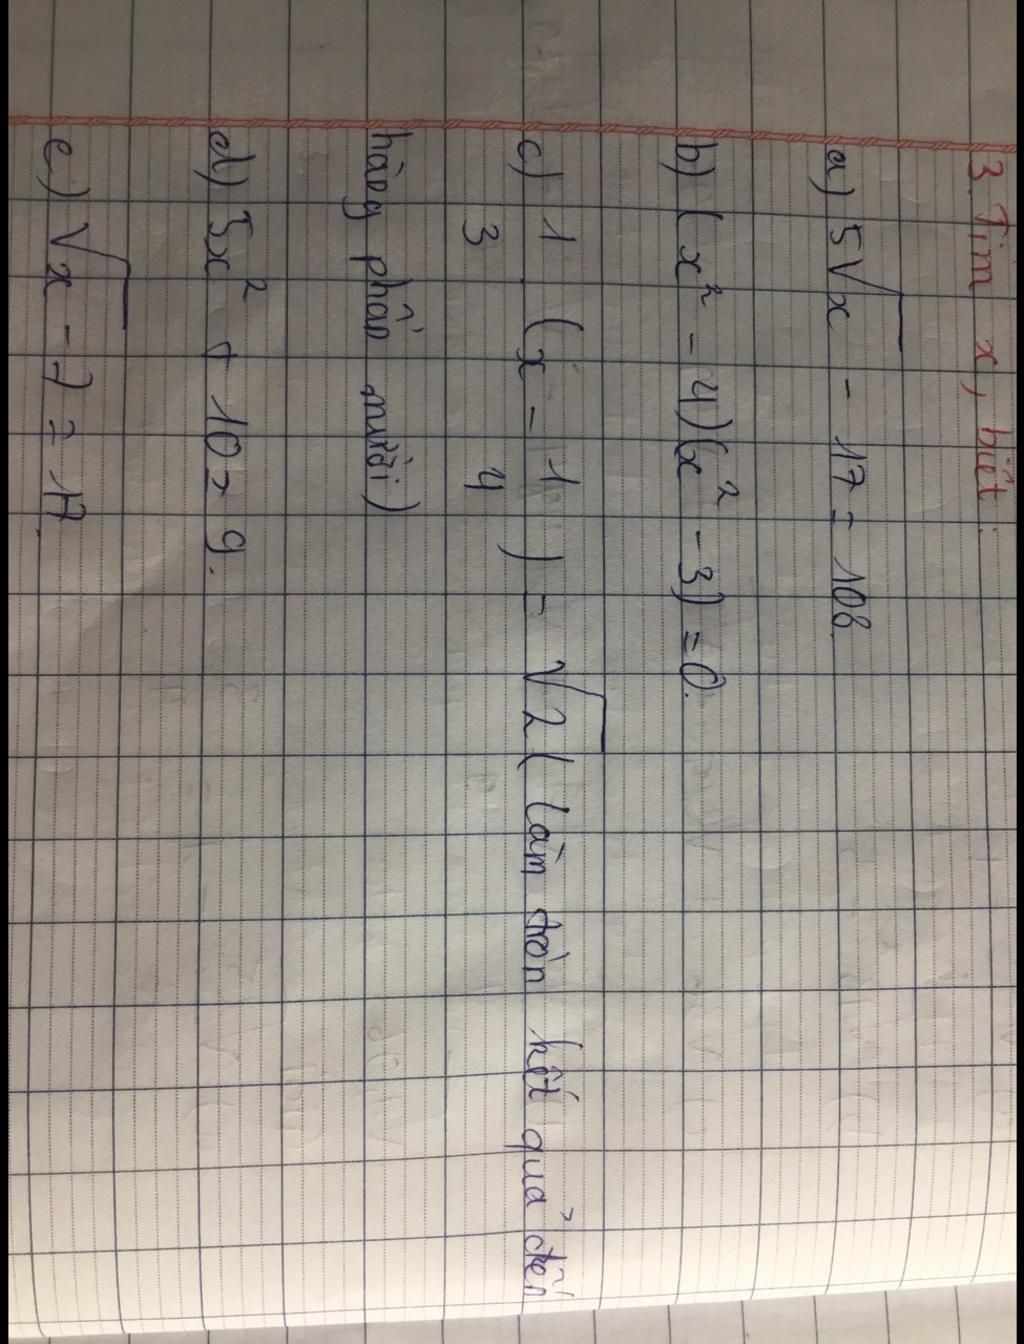 3. Tìm x, biết:
a) 5√x - 17 = 108.
b) (x² - 4)(x² - 3) = 0.
c) 1/3 . (x - 1/4) = √2 (làm tròn kết quả đến
hàng phần mười)
d) 3x² + 10 = 9.
e) √x - 7 = 17.